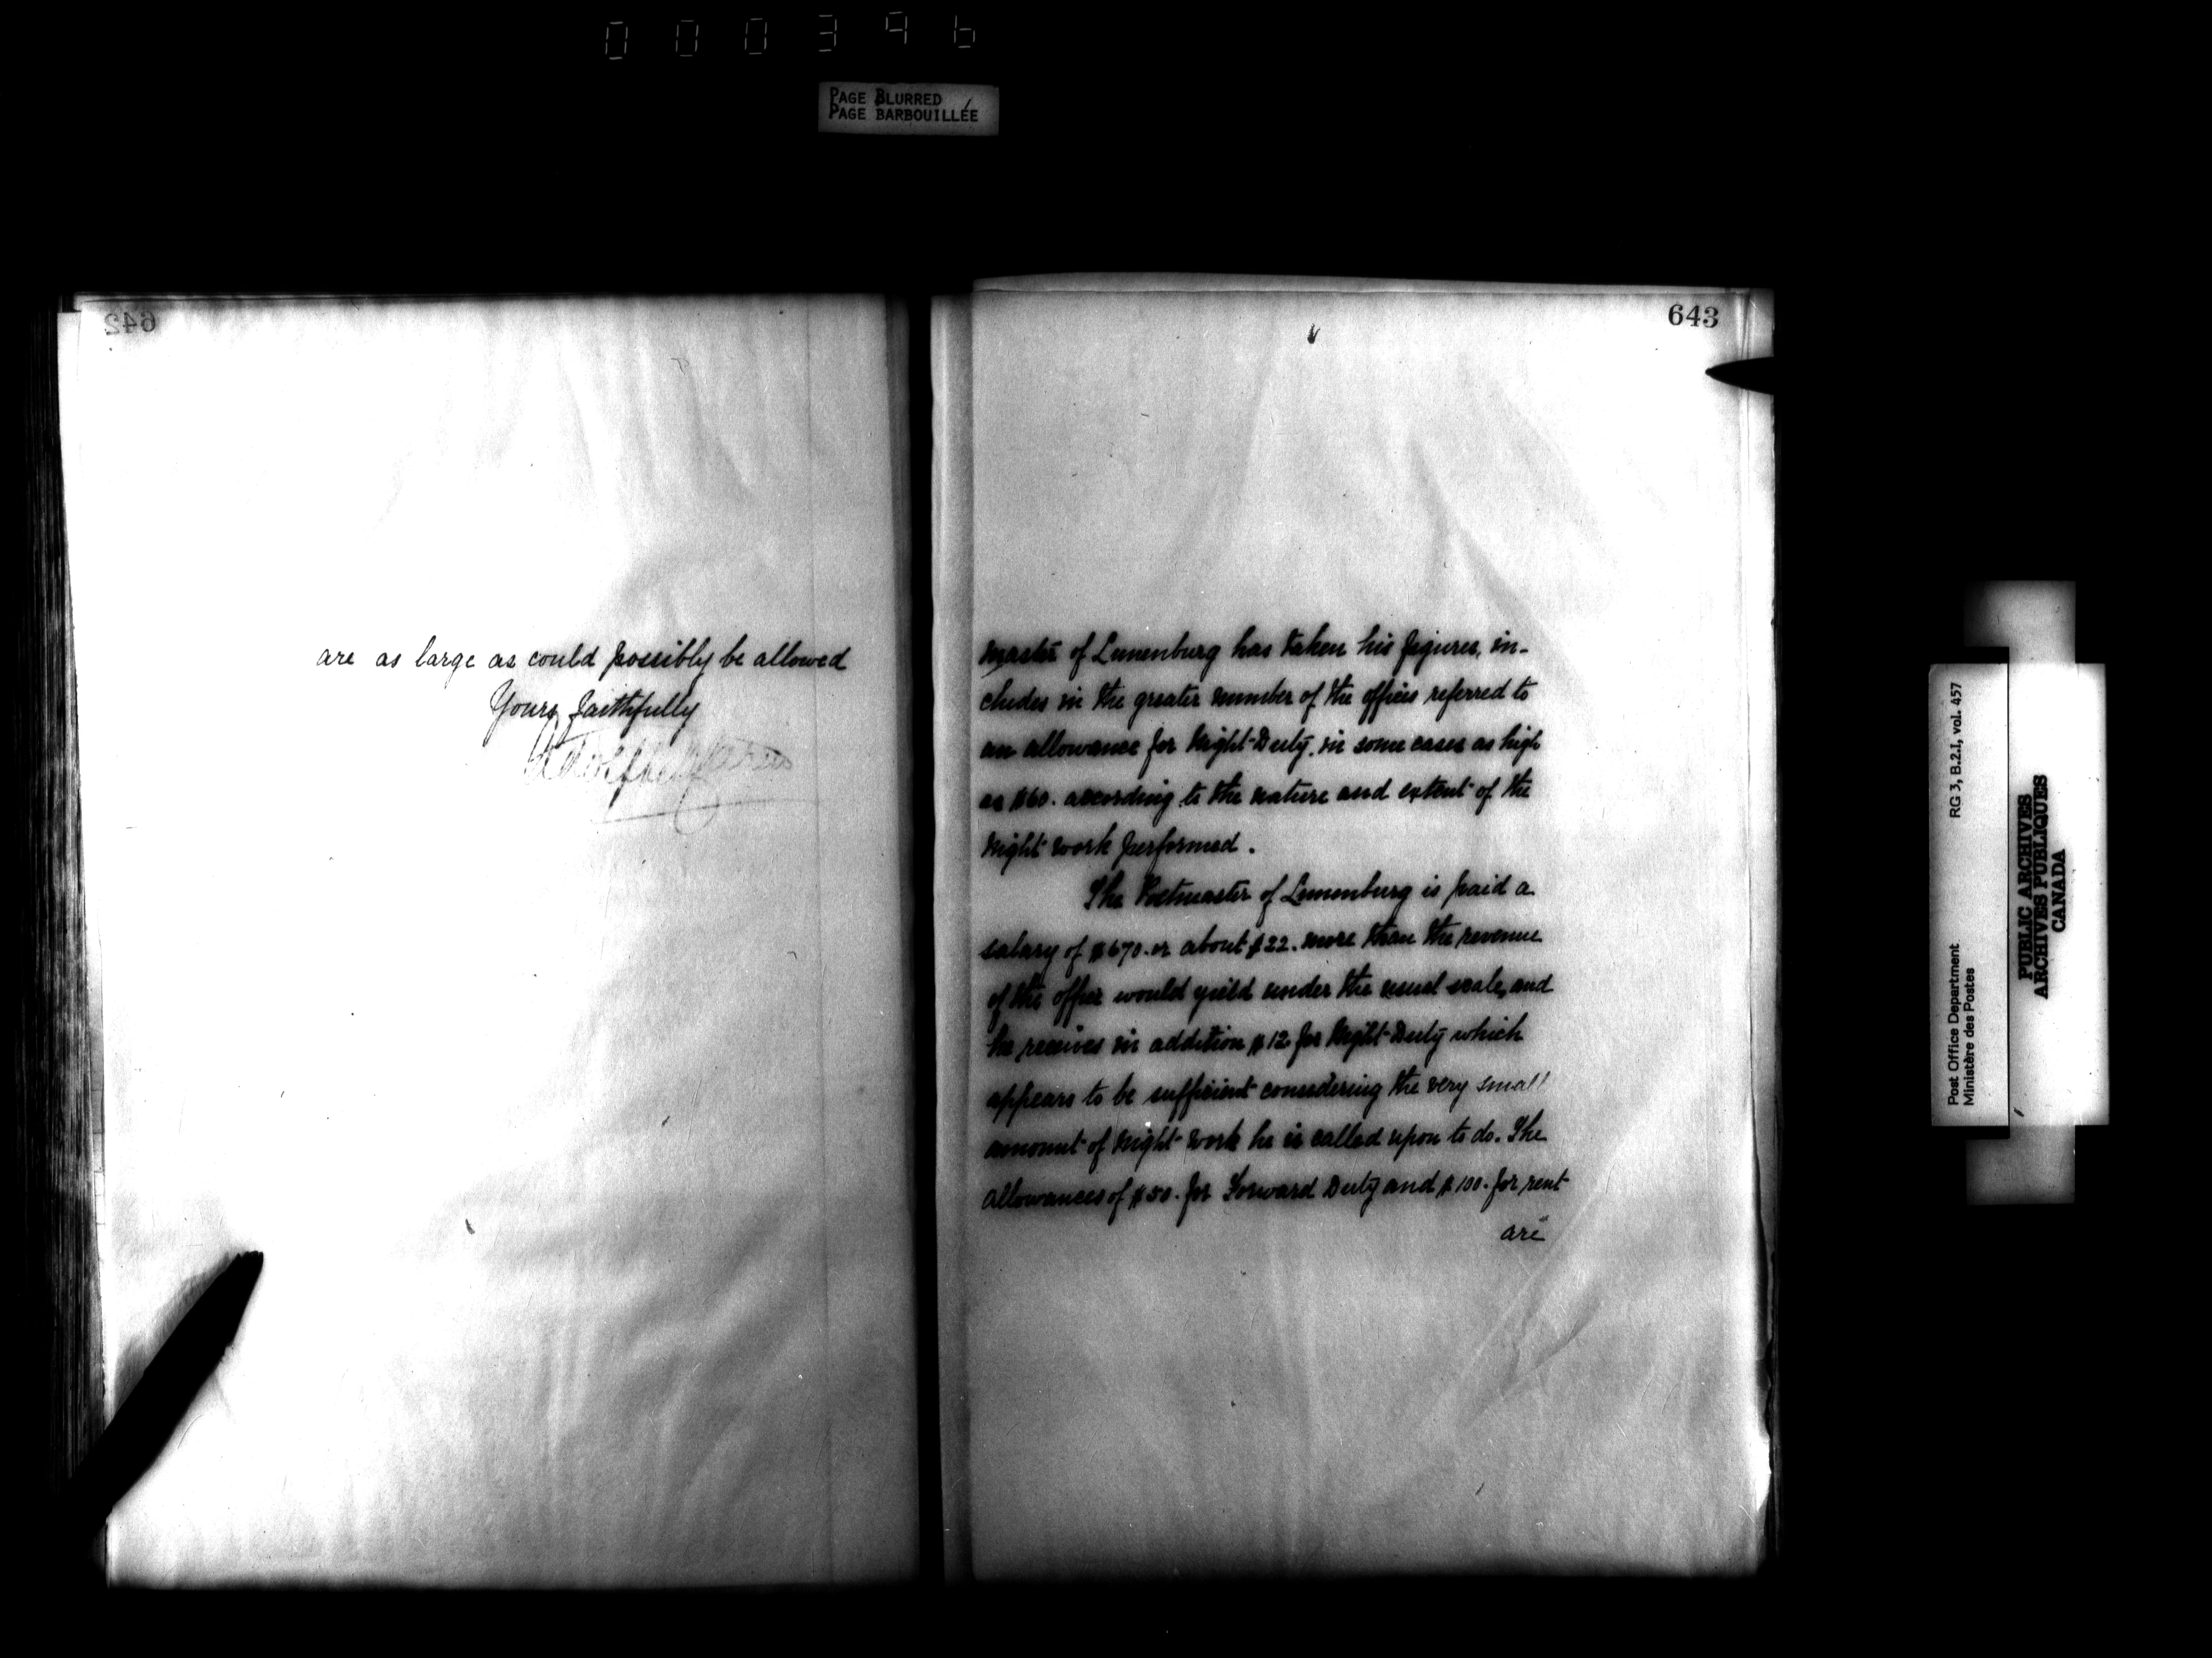 000396
PAGE BLURRED
PAGE BARBOUILLÉE
642
are as large as could possibly be allowed
Yours faithfully
643
master of Lunenburg has taken his figures, in-
cludes in the greater number of the offices referred to
an allowance for Night-Duty, in some cases as high
as $60. according to the nature and extent of the
Night work performed.
The Postmaster of Lunenburg is paid a
salary of $670. or about $22. more than the revenue
of the office would yield under the usual scale, and
he receives in addition $12 for Night-Duty which
appears to be sufficient considering the very small
amount of Night work he is called upon to do. The
allowances of $50. for Forward Duty and $100. for rent
are
Post Office Department RG 3, B.2.I, vol. 457
Ministère des Postes
PUBLIC ARCHIVES
ARCHIVES PUBLIQUES
CANADA